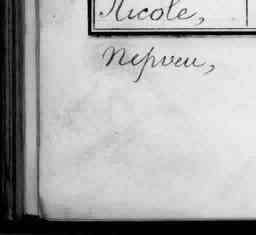 Nicole,
Nepveu,